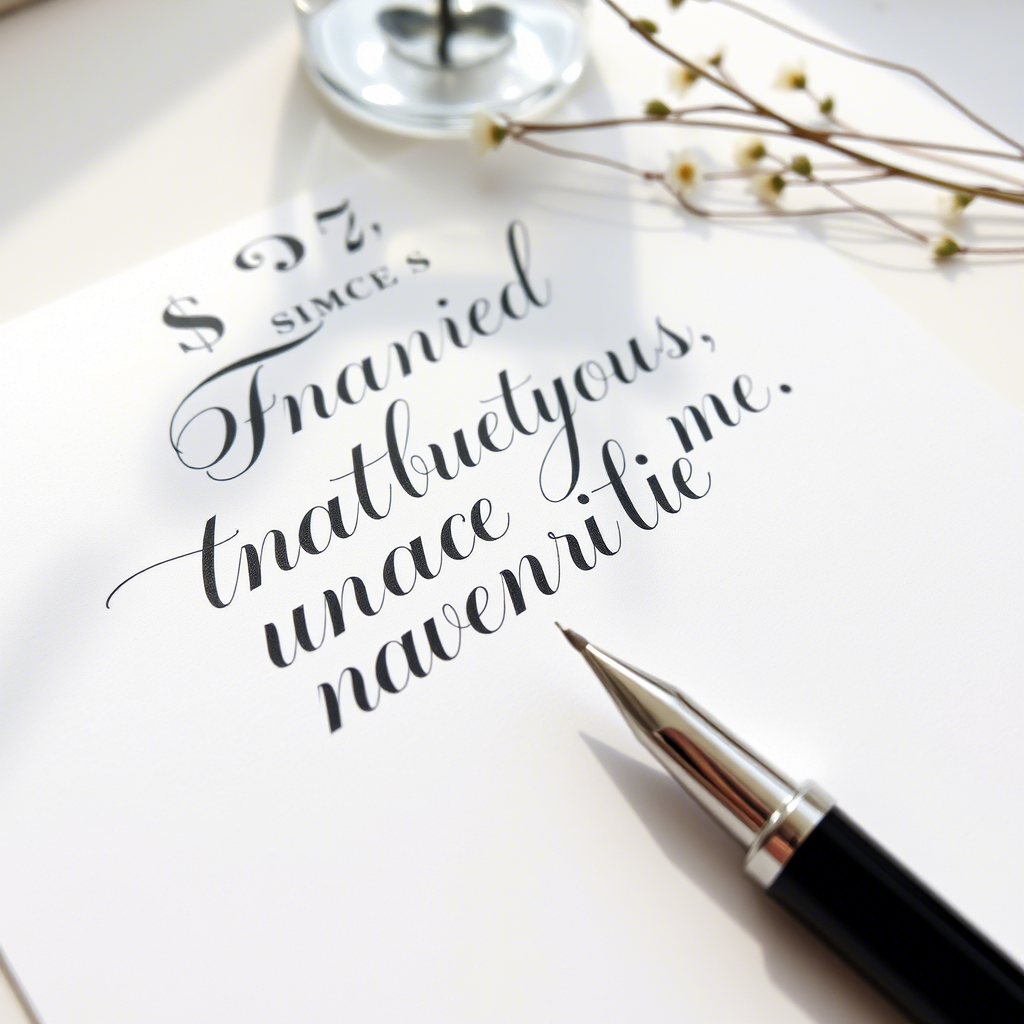 $ 97,
SIMCE S
Fnanied
tnatbuetyous,
unace me.
navenrilie